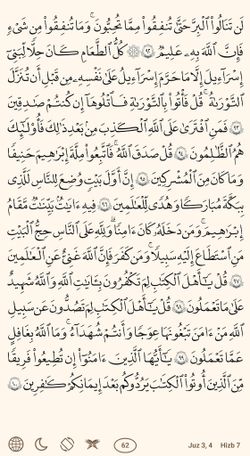 لَن تَنَالُوا۟ ٱلْبِرَّ حَتَّىٰ تُنفِقُوا۟ مِمَّا تُحِبُّونَ ۚ وَمَا تُنفِقُوا۟ مِن شَىْءٍ
فَإِنَّ ٱللَّهَ بِهِۦ عَلِيمٌ ٩٢ ۞ كُلُّ ٱلطَّعَامِ كَانَ حِلًّا لِّبَنِىٓ
إِسْرَٰٓءِيلَ إِلَّا مَا حَرَّمَ إِسْرَٰٓءِيلُ عَلَىٰ نَفْسِهِۦ مِن قَبْلِ أَن تُنَزَّلَ
ٱلتَّوْرَىٰةُ ۗ قُلْ فَأْتُوا۟ بِٱلتَّوْرَىٰةِ فَٱتْلُوهَآ إِن كُنتُمْ صَـٰدِقِينَ
٩٣ فَمَنِ ٱفْتَرَىٰ عَلَى ٱللَّهِ ٱلْكَذِبَ مِنۢ بَعْدِ ذَٰلِكَ فَأُو۟لَـٰٓئِكَ
هُمُ ٱلظَّـٰلِمُونَ ٩٤ قُلْ صَدَقَ ٱللَّهُ ۗ فَٱتَّبِعُوا۟ مِلَّةَ إِبْرَٰهِيمَ حَنِيفًا
وَمَا كَانَ مِنَ ٱلْمُشْرِكِينَ ٩٥ إِنَّ أَوَّلَ بَيْتٍ وُضِعَ لِلنَّاسِ لَلَّذِى
بِبَكَّةَ مُبَارَكًا وَهُدًى لِّلْعَـٰلَمِينَ ٩٦ فِيهِ ءَايَـٰتٌۢ بَيِّنَـٰتٌ مَّقَامُ
إِبْرَٰهِيمَ ۖ وَمَن دَخَلَهُۥ كَانَ ءَامِنًا ۗ وَلِلَّهِ عَلَى ٱلنَّاسِ حِجُّ ٱلْبَيْتِ
مَنِ ٱسْتَطَاعَ إِلَيْهِ سَبِيلًا ۚ وَمَن كَفَرَ فَإِنَّ ٱللَّهَ غَنِىٌّ عَنِ ٱلْعَـٰلَمِينَ
٩٧ قُلْ يَـٰٓأَهْلَ ٱلْكِتَـٰبِ لِمَ تَكْفُرُونَ بِـَٔايَـٰتِ ٱللَّهِ وَٱللَّهُ شَهِيدٌ
عَلَىٰ مَا تَعْمَلُونَ ٩٨ قُلْ يَـٰٓأَهْلَ ٱلْكِتَـٰبِ لِمَ تَصُدُّونَ عَن سَبِيلِ
ٱللَّهِ مَنْ ءَامَنَ تَبْغُونَهَا عِوَجًا وَأَنتُمْ شُهَدَآءُ ۗ وَمَا ٱللَّهُ بِغَـٰفِلٍ
عَمَّا تَعْمَلُونَ ٩٩ يَـٰٓأَيُّهَا ٱلَّذِينَ ءَامَنُوٓا۟ إِن تُطِيعُوا۟ فَرِيقًا
مِّنَ ٱلَّذِينَ أُوتُوا۟ ٱلْكِتَـٰبَ يَرُدُّوكُم بَعْدَ إِيمَـٰنِكُمْ كَـٰفِرِينَ ١٠٠
62 Juz 3, 4 Hizb 7